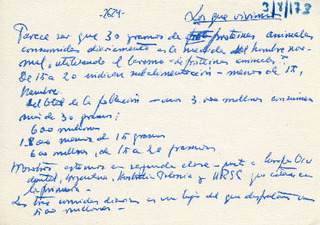 -2624-
Los que vivimos
3/V/73
Parece ser que 30 gramos de proteínas animales
consumidas diariamente es la medida del hombre nor-
mal, utilizando el baremo "de proteínas animales".
De 15 a 20 indican subalimentación - menos de 15,
hambre.
Del total de la población - unos 3.000 millones consumen
más de 30 gramos;
600 millones
1.800 menos de 15 gramos
600 millones, de 15 a 20 gramos
Nosotros - estamos en segunda clase - junto a Europa Occi
dental, Argentina, Australia Polonia y URSS que están en
la primera -
Las tres comidas diarias es un lujo del que disfrutan unos
1.500 millones -